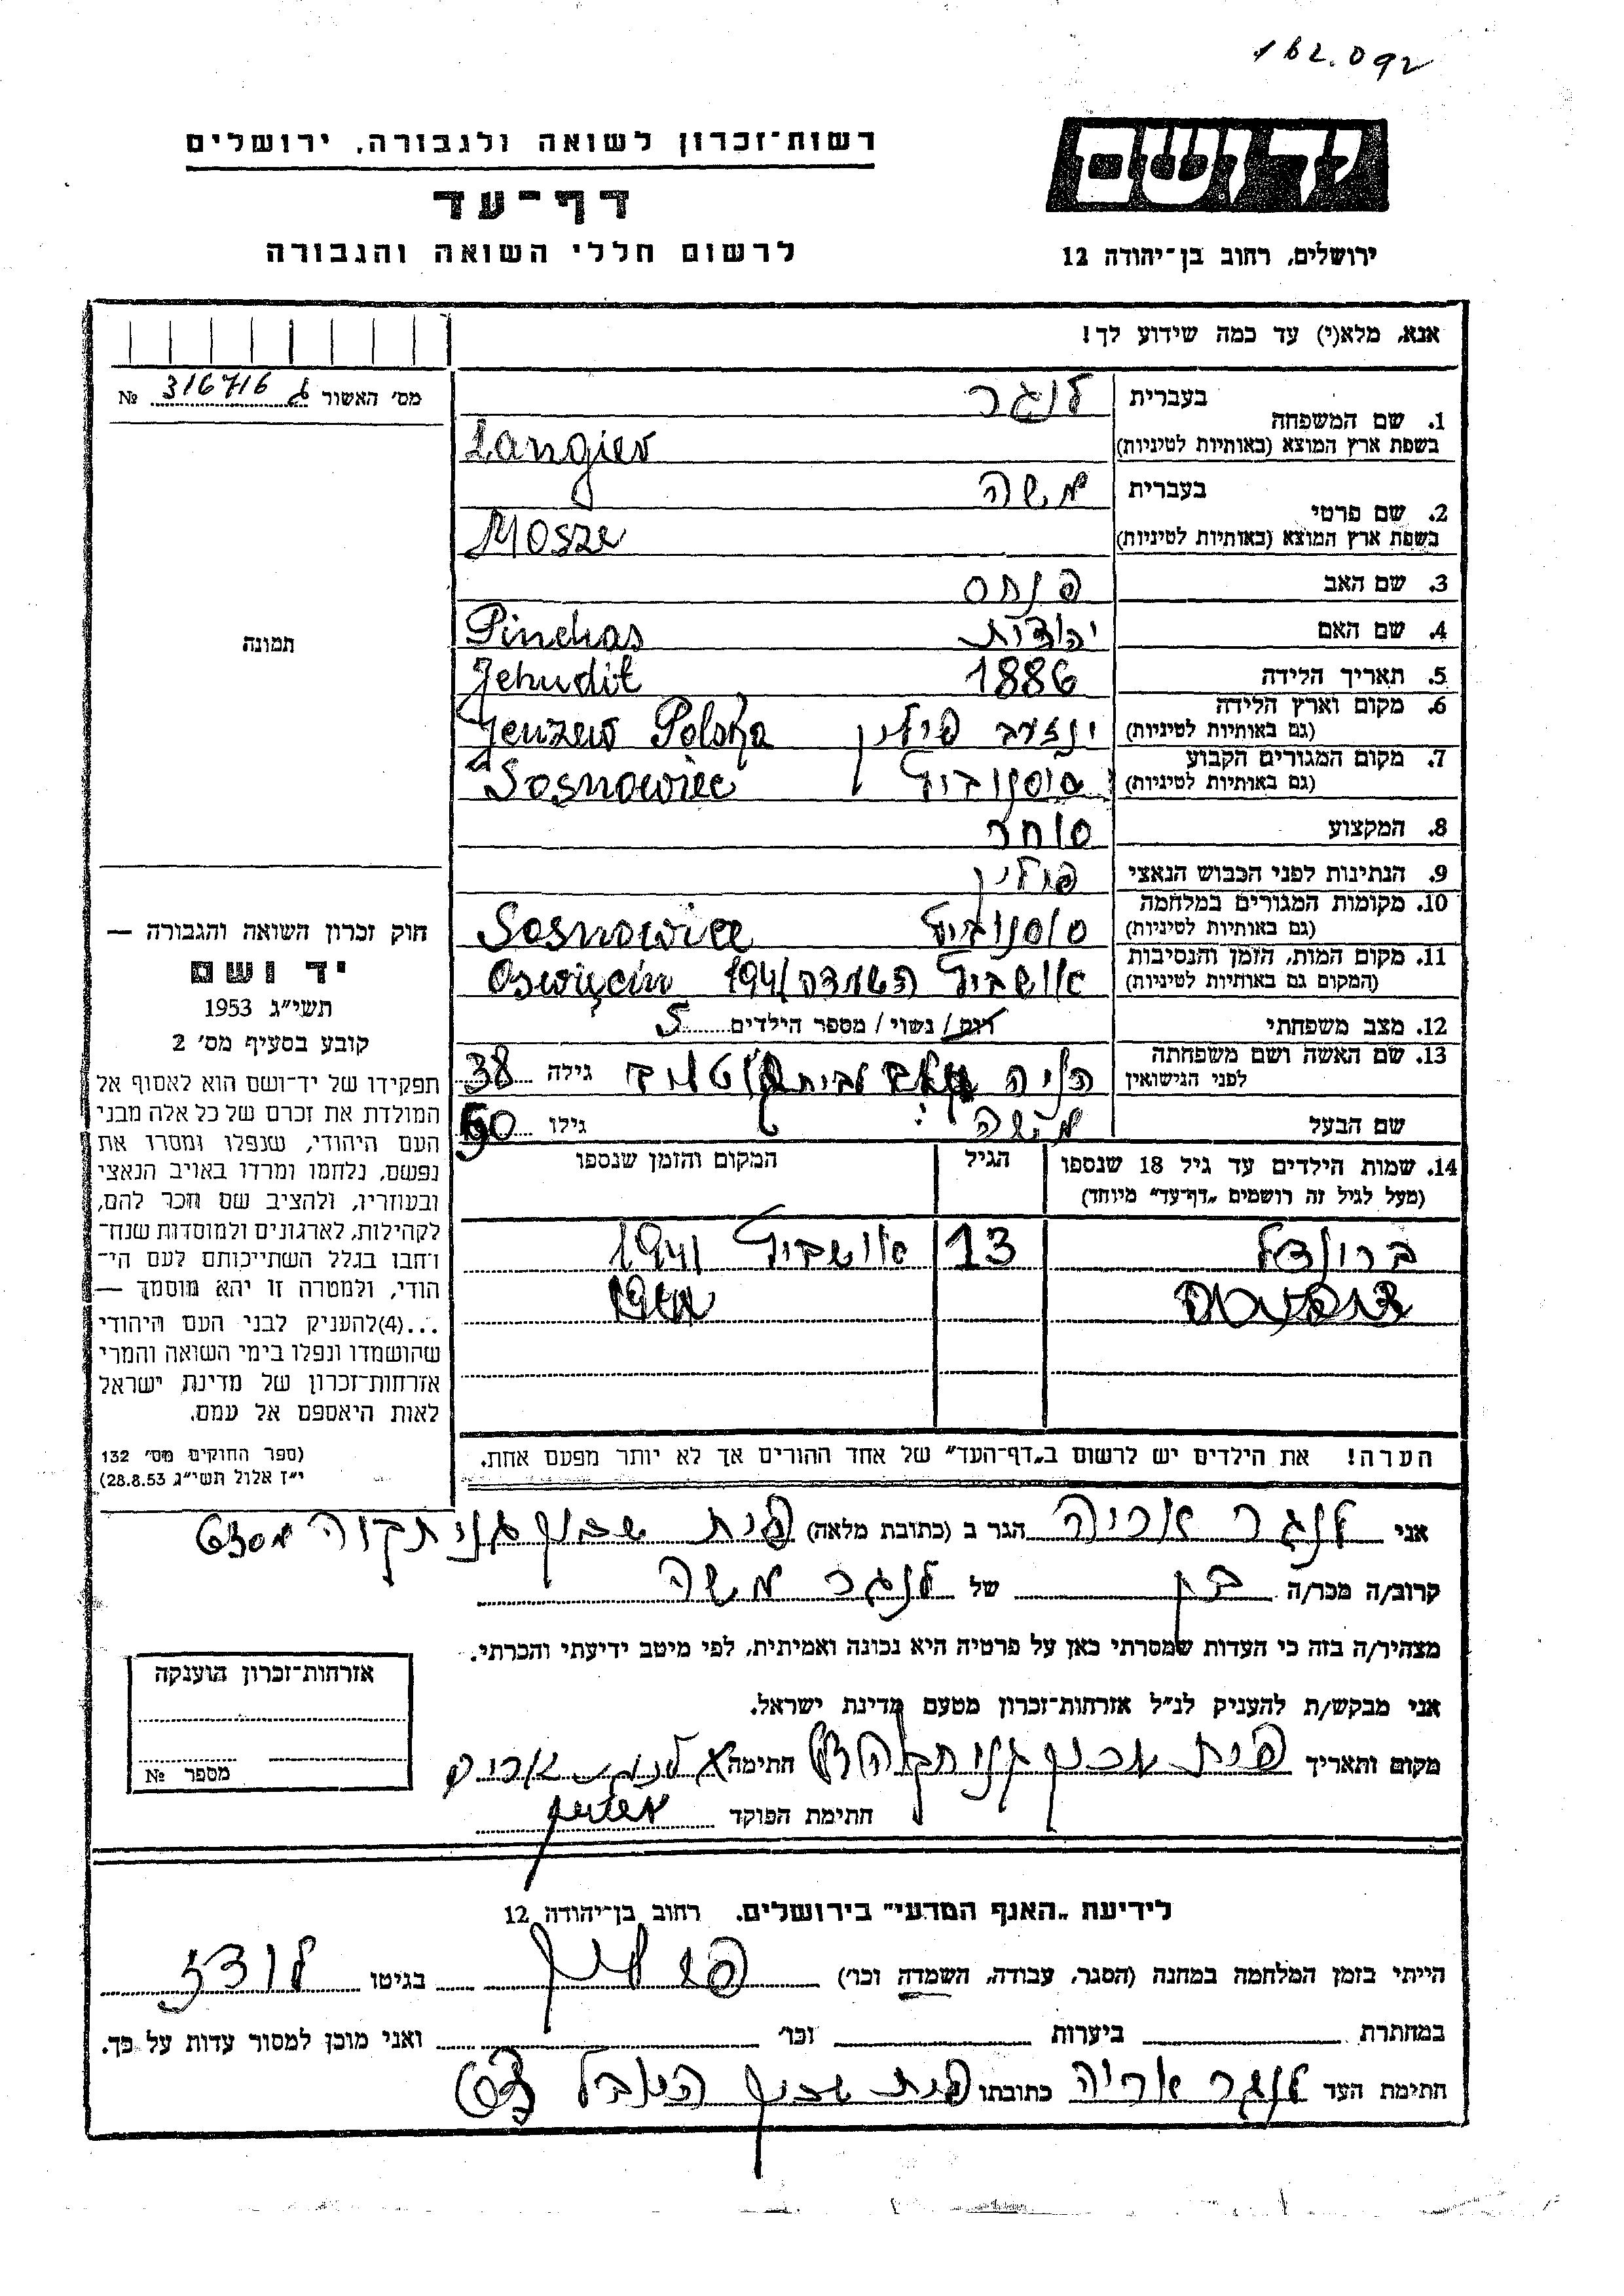 162.092
יד ושם
רשות־זכרון לשואה ולגבורה, ירושלים
דף־עד
לרשום חללי השואה והגבורה
ירושלים, רחוב בן־יהודה 12
אנא, מלא(י) עד כמה שידוע לך!
מס' האשור 316716 №
תמונה
1. שם המשפחה
בעברית לנגר
בשפת ארץ המוצא (באותיות לטיניות) Langier
2. שם פרטי
בעברית משה
בשפת ארץ המוצא (באותיות לטיניות) Mosze
3. שם האב פנחס
4. שם האם יהודית Pinchas
5. תאריך הלידה 1886 Jehudit
6. מקום וארץ הלידה
(גם באותיות לטיניות) פולין Polska
7. מקום המגורים הקבוע
(גם באותיות לטיניות) סוסנוביץ Sosnowiec
8. המקצוע סוחר
9. הנתינות לפני הכבוש הנאצי פולין
10. מקומות המגורים במלחמה
(גם באותיות לטיניות) סוסנוביץ Sosnowiec
11. מקום המות, הזמן והנסיבות
(המקום גם באותיות לטיניות) אושביץ השמדה 1941 Oswięcim
12. מצב משפחתי רווק / נשוי / מספר הילדים 5
13. שם האשה ושם משפחתה
לפני הנישואין גילה 38
שם הבעל משה גילו 50
14. שמות הילדים עד גיל 18 שנספו
(מעל לגיל זה רושמים "דף־עד" מיוחד)
הגיל
המקום והזמן שנספו
ברונדל 13 אושביץ 1941
הערה! את הילדים יש לרשום ב"דף־העד" של אחד ההורים אך לא יותר מפעם אחת.
חוק זכרון השואה והגבורה —
יד ושם
תשי"ג 1953
קובע בסעיף מס' 2
תפקידו של יד־ושם הוא לאסוף אל
המולדת את זכרם של כל אלה מבני
העם היהודי, שנפלו ומסרו את
נפשם, נלחמו ומרדו באויב הנאצי
ובעוזריו, ולהציב שם וזכר להם,
לקהילות, לארגונים ולמוסדות שנח־
רחבו בגלל השתייכותם לעם הי־
הודי, ולמטרה זו יהא מוסמך —
...(4)להעניק לבני העם היהודי
שהושמדו ונפלו בימי השואה והמרי
אזרחות־זכרון של מדינת ישראל
לאות היאספם אל עמם.
(ספר החוקים מס' 132
י"ז אלול תשי"ג 28.8.53)
אני לנגר אריה הגר ב (כתובת מלאה) בית שכון
קרוב/ה מכר/ה בן של לנגר משה
מצהיר/ה בזה כי העדות שמסרתי כאן על פרטיה היא נכונה ואמיתית, לפי מיטב ידיעתי והכרתי.
אני מבקש/ת להעניק לנ"ל אזרחות־זכרון מטעם מדינת ישראל.
מקום ותאריך חתימה לנגר אריה
חתימת הפוקד
אזרחות־זכרון הוענקה
מספר №
לידיעת "האגף המדעי" בירושלים, רחוב בן־יהודה 12
הייתי בזמן המלחמה במחנה (הסגר, עבודה, השמדה וכו') בגיטו לודז
במחתרת ביערות וכו' ואני מוכן למסור עדות על כך.
חתימת העד לנגר אריה כתובתו בית שכון